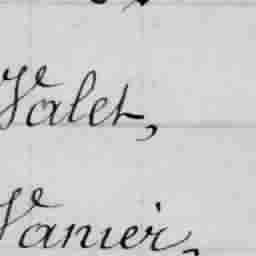 Valet,
Vanier,